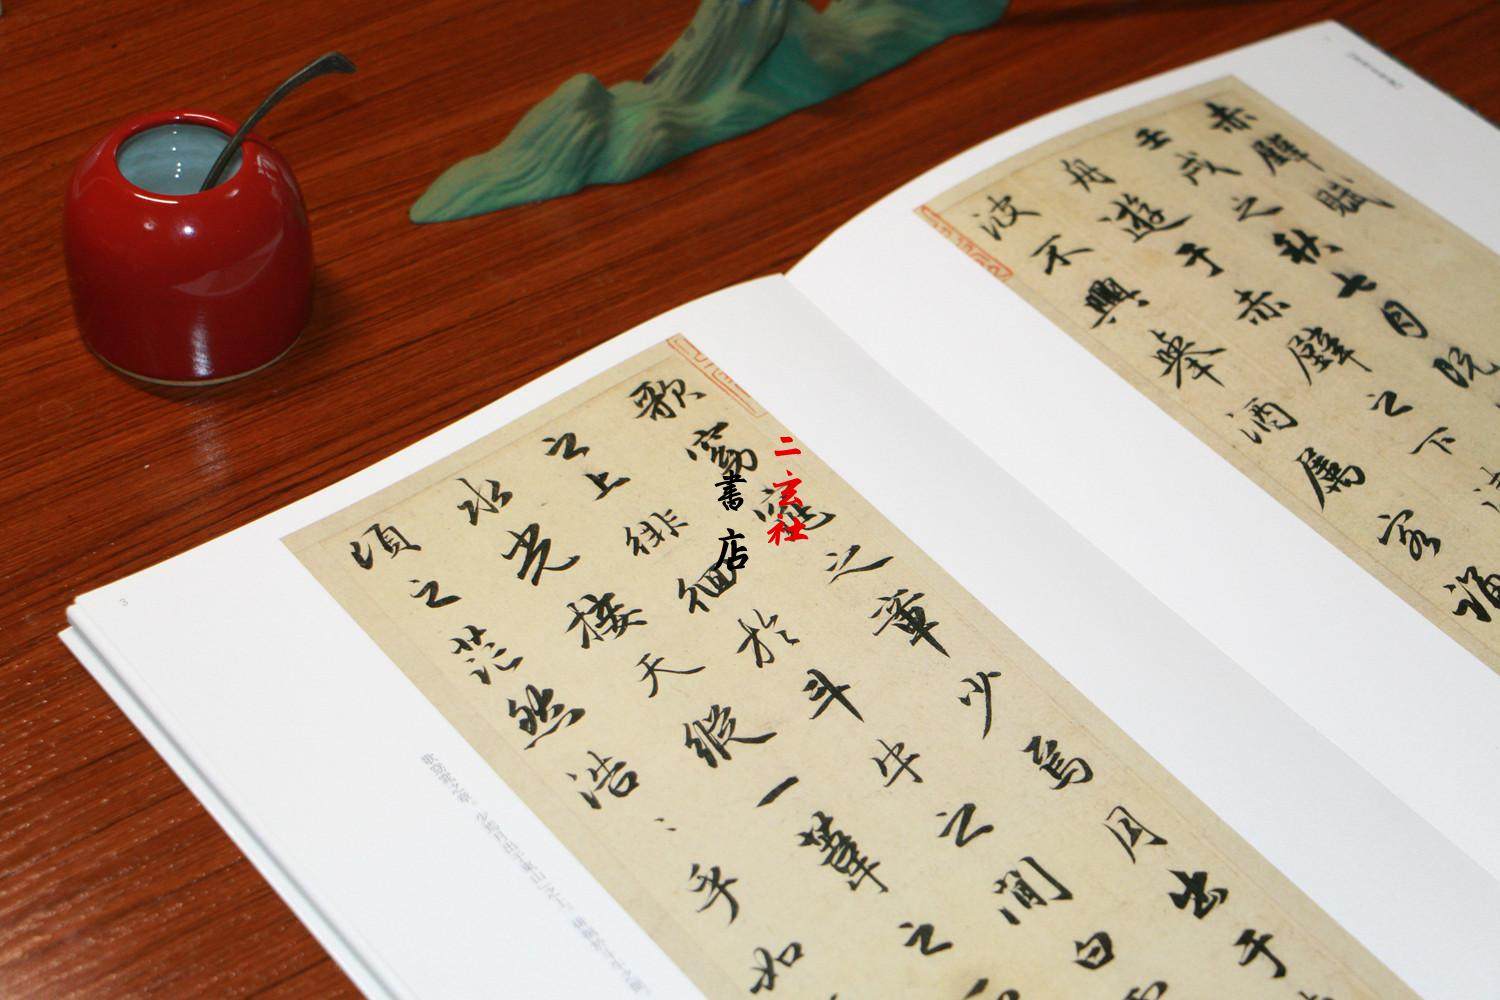 赤壁賦
壬戌之秋七月既
舟遊于赤壁之下
波不興舉酒屬客誦
歌窈窕之章少焉月出于
之上徘徊於斗牛之間白
水光接天縱一葦之
頃之茫然浩、乎如
二玄社
書店
3